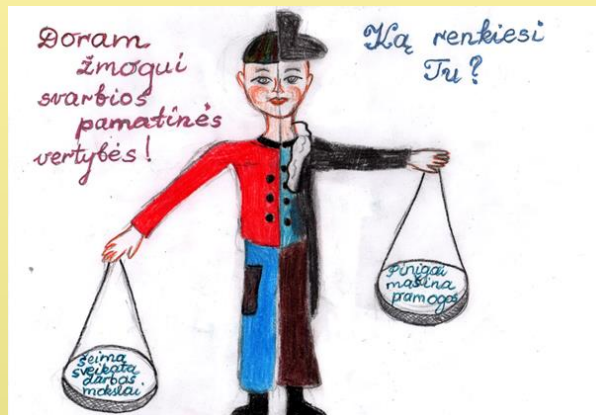 Doram
žmogui
svarbios
pamatinės
vertybės!
Ką renkiesi
Tu?
Pinigai
mašina
pramogos
šeima
sveikata
darbas
mokslai